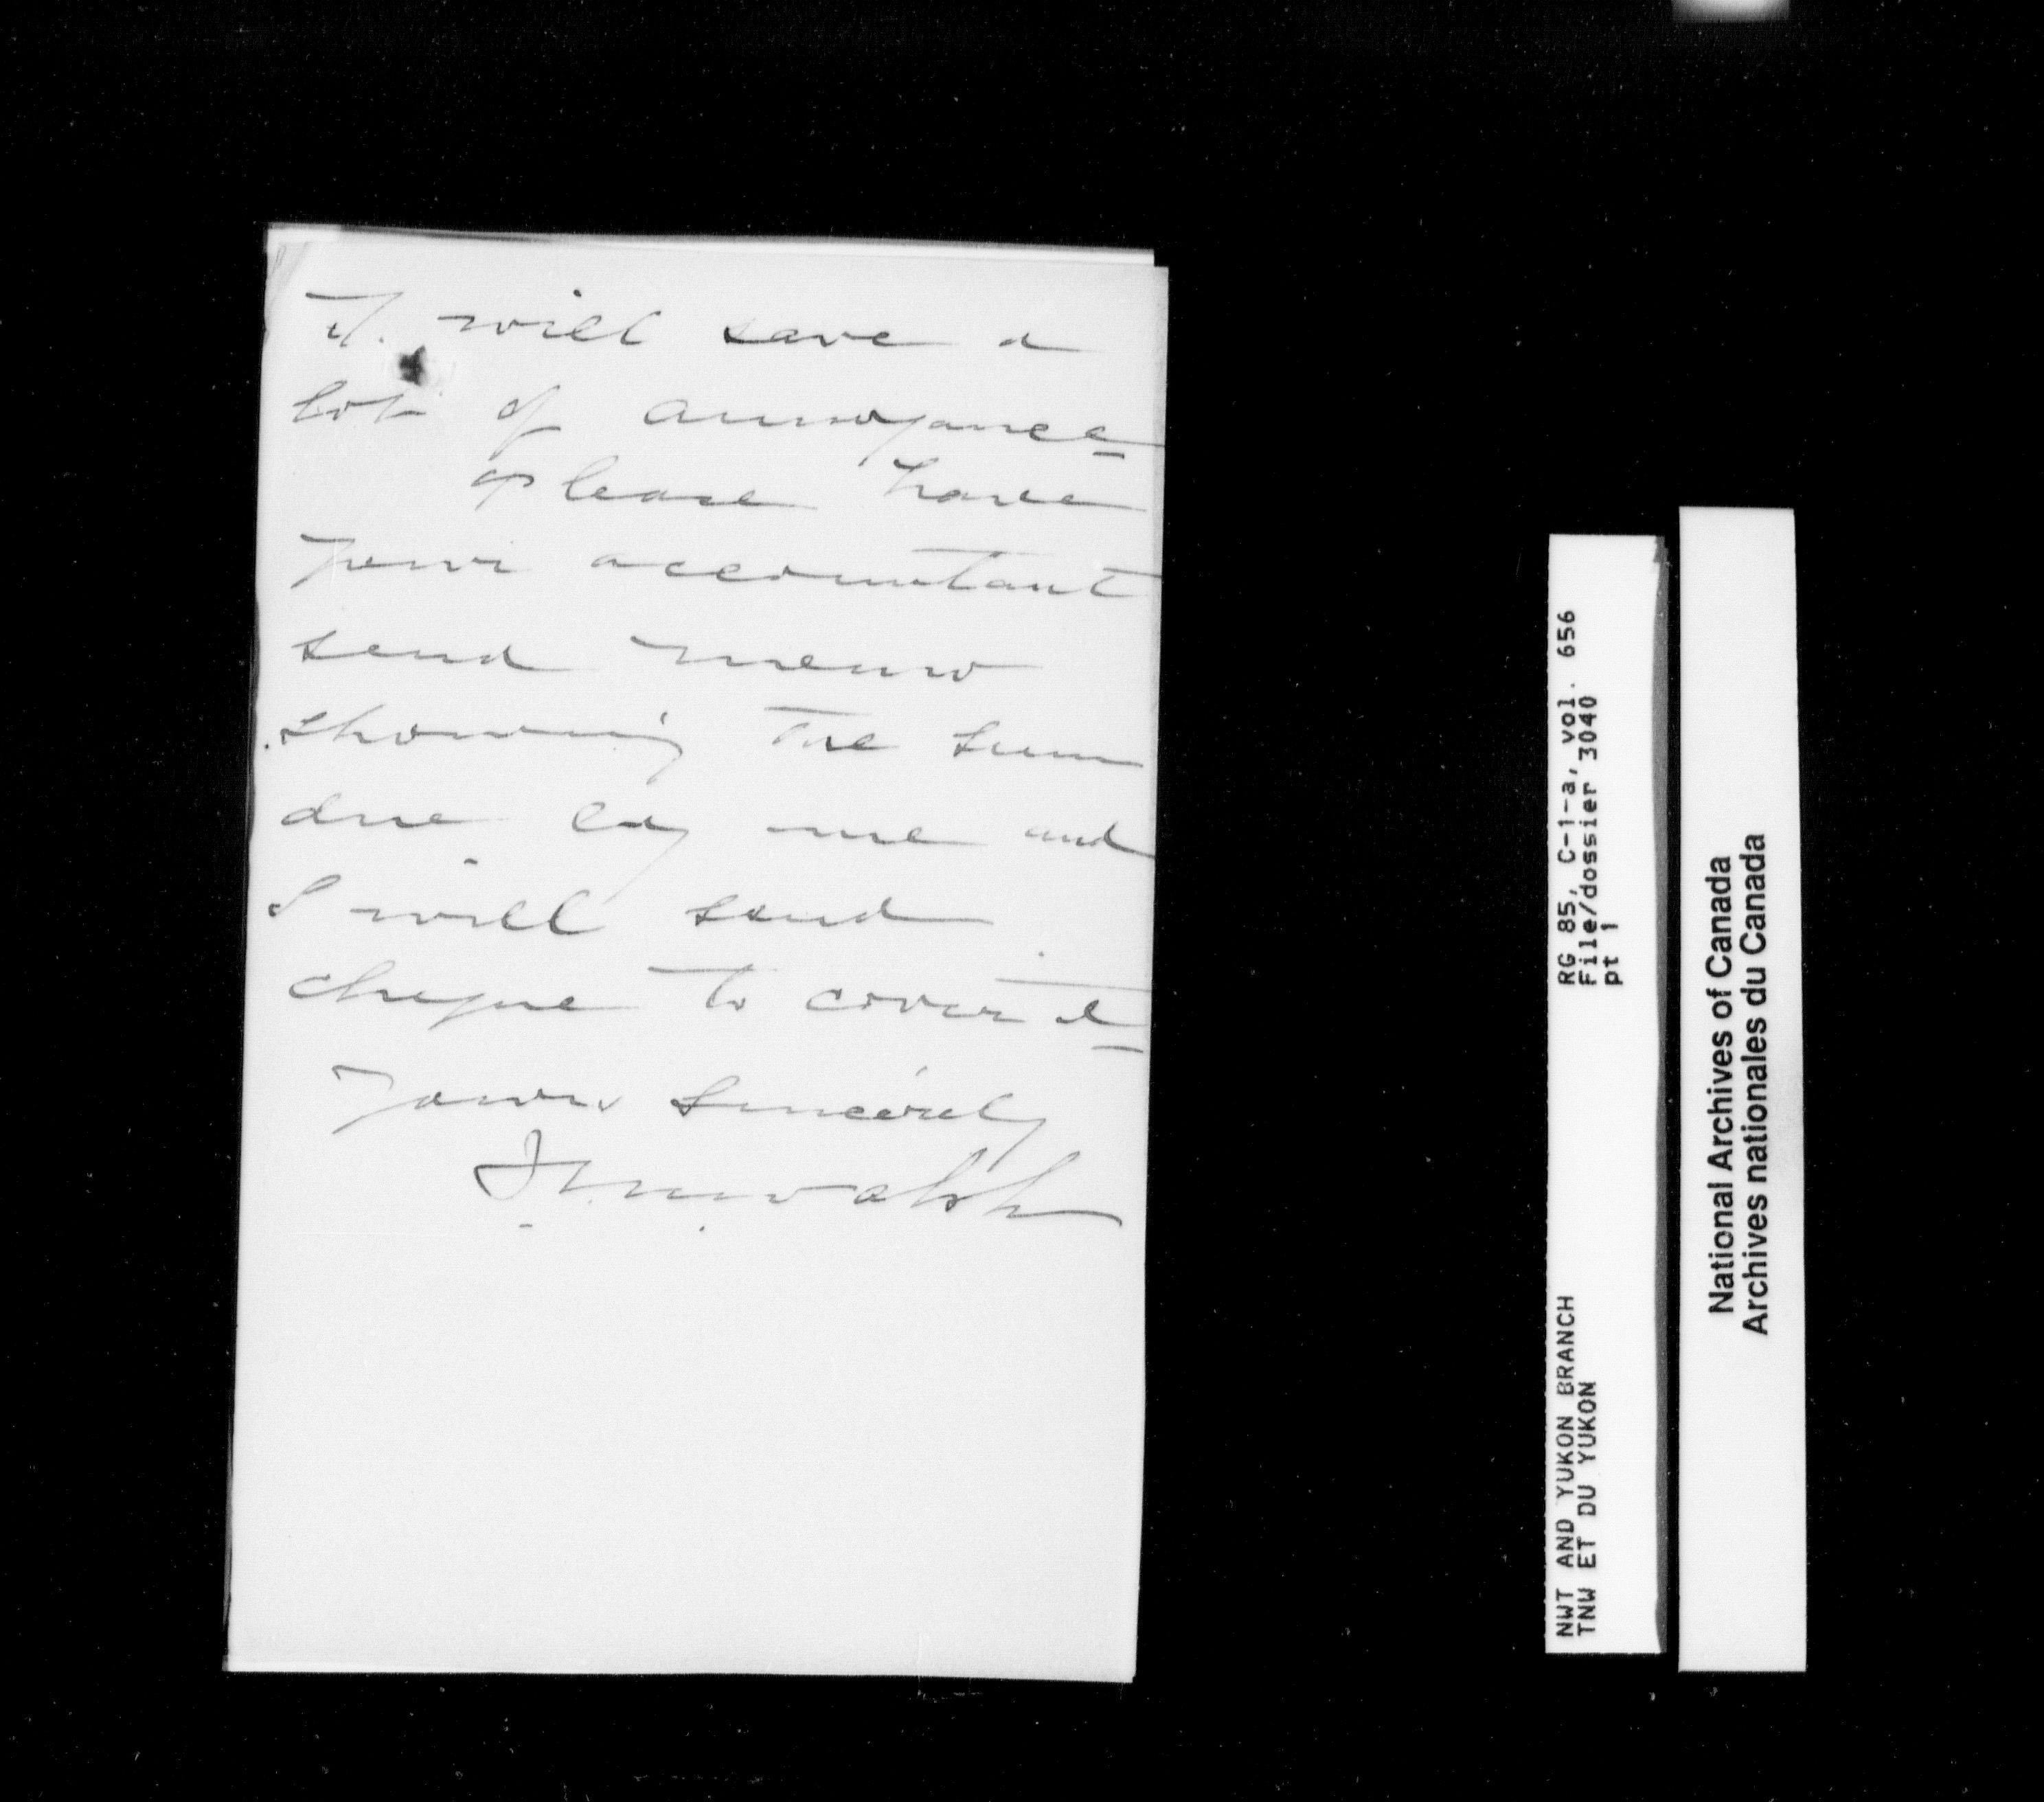 It will save a
lot of annoyance
Please have
your accountant
send memo
showing the sum
due by me and
I will send
cheque to cover it
Yours sincerely
J M Walsh
RG 85, C-1-a, vol. 656
File/dossier 3040
pt 1
NWT AND YUKON BRANCH
TNW ET DU YUKON
National Archives of Canada
Archives nationales du Canada